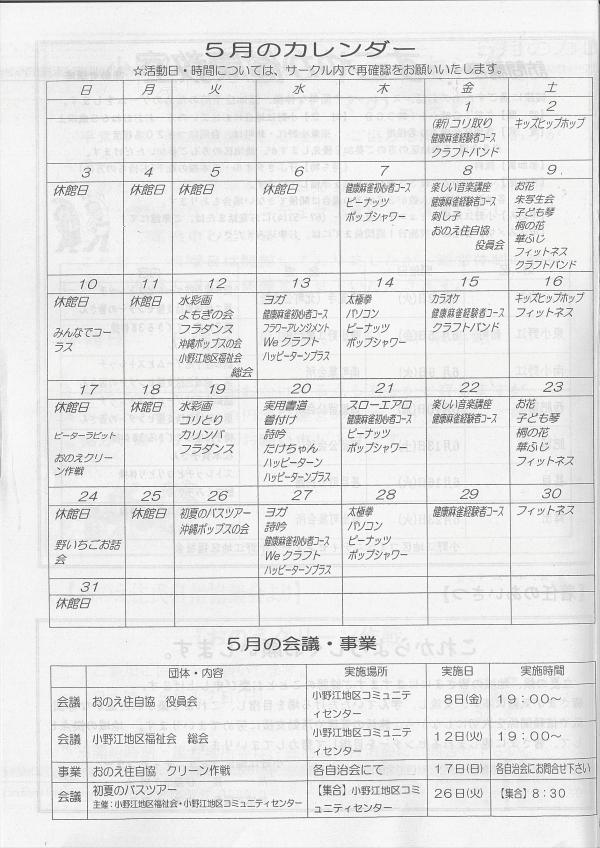 5月のカレンダー
☆活動日・時間については、サークル内で再確認をお願いいたします。
日 月 火 水 木 金 土
1 2
(新)コリ取り キッズヒップホップ
健康麻雀経験者コース
クラフトバンド
3 4 5 6 7 8 9
休館日 休館日 休館日 休館日 健康麻雀初心者コース 楽しい音楽講座 お花
ピーナッツ 健康麻雀経験者コース 朱写生会
ポップシャワー 刺し子 子ども琴
おのえ住自協 桐の花
役員会 華ふじ
フィットネス
クラフトバンド
10 11 12 13 14 15 16
休館日 休館日 水彩画 ヨガ 太極拳 カラオケ キッズヒップホップ
よもぎの会 健康麻雀初心者コース パソコン 健康麻雀経験者コース フィットネス
みんなでコー フラダンス フラワーアレンジメント ピーナッツ クラフトバンド
ラス 沖縄ポップスの会 Weクラフト ポップシャワー
小野江地区福祉会 ハッピーターンプラス
総会
17 18 19 20 21 22 23
休館日 休館日 水彩画 実用書道 スローエアロ 楽しい音楽講座 お花
コリとり 着付け 健康麻雀初心者コース 健康麻雀経験者コース 子ども琴
ピーターラビット カリンバ 詩吟 ピーナッツ 桐の花
フラダンス たけちゃん ポップシャワー 華ふじ
おのえクリー ハッピーターン フィットネス
ン作戦 ハッピーターンプラス
24 25 26 27 28 29 30
休館日 休館日 初夏のバスツアー ヨガ 太極拳 健康麻雀経験者コース フィットネス
沖縄ポップスの会 詩吟 パソコン
野いちごお話 健康麻雀初心者コース ピーナッツ
会 Weクラフト ポップシャワー
ハッピーターンプラス
31
休館日
5月の会議・事業
団体・内容 実施場所 実施日 実施時間
会議 おのえ住自協 役員会 小野江地区コミュニテ
ィセンター 8日(金) 19:00～
会議 小野江地区福祉会 総会 小野江地区コミュニテ
ィセンター 12日(火) 19:00～
事業 おのえ住自協 クリーン作戦 各自治会にて 17日(日) 各自治会にお問合せ下さい
会議 初夏のバスツアー 【集合】小野江地区コミ 26日(火) 【集合】8:30
主催:小野江地区福祉会・小野江地区コミュニティセンター ュニティセンター